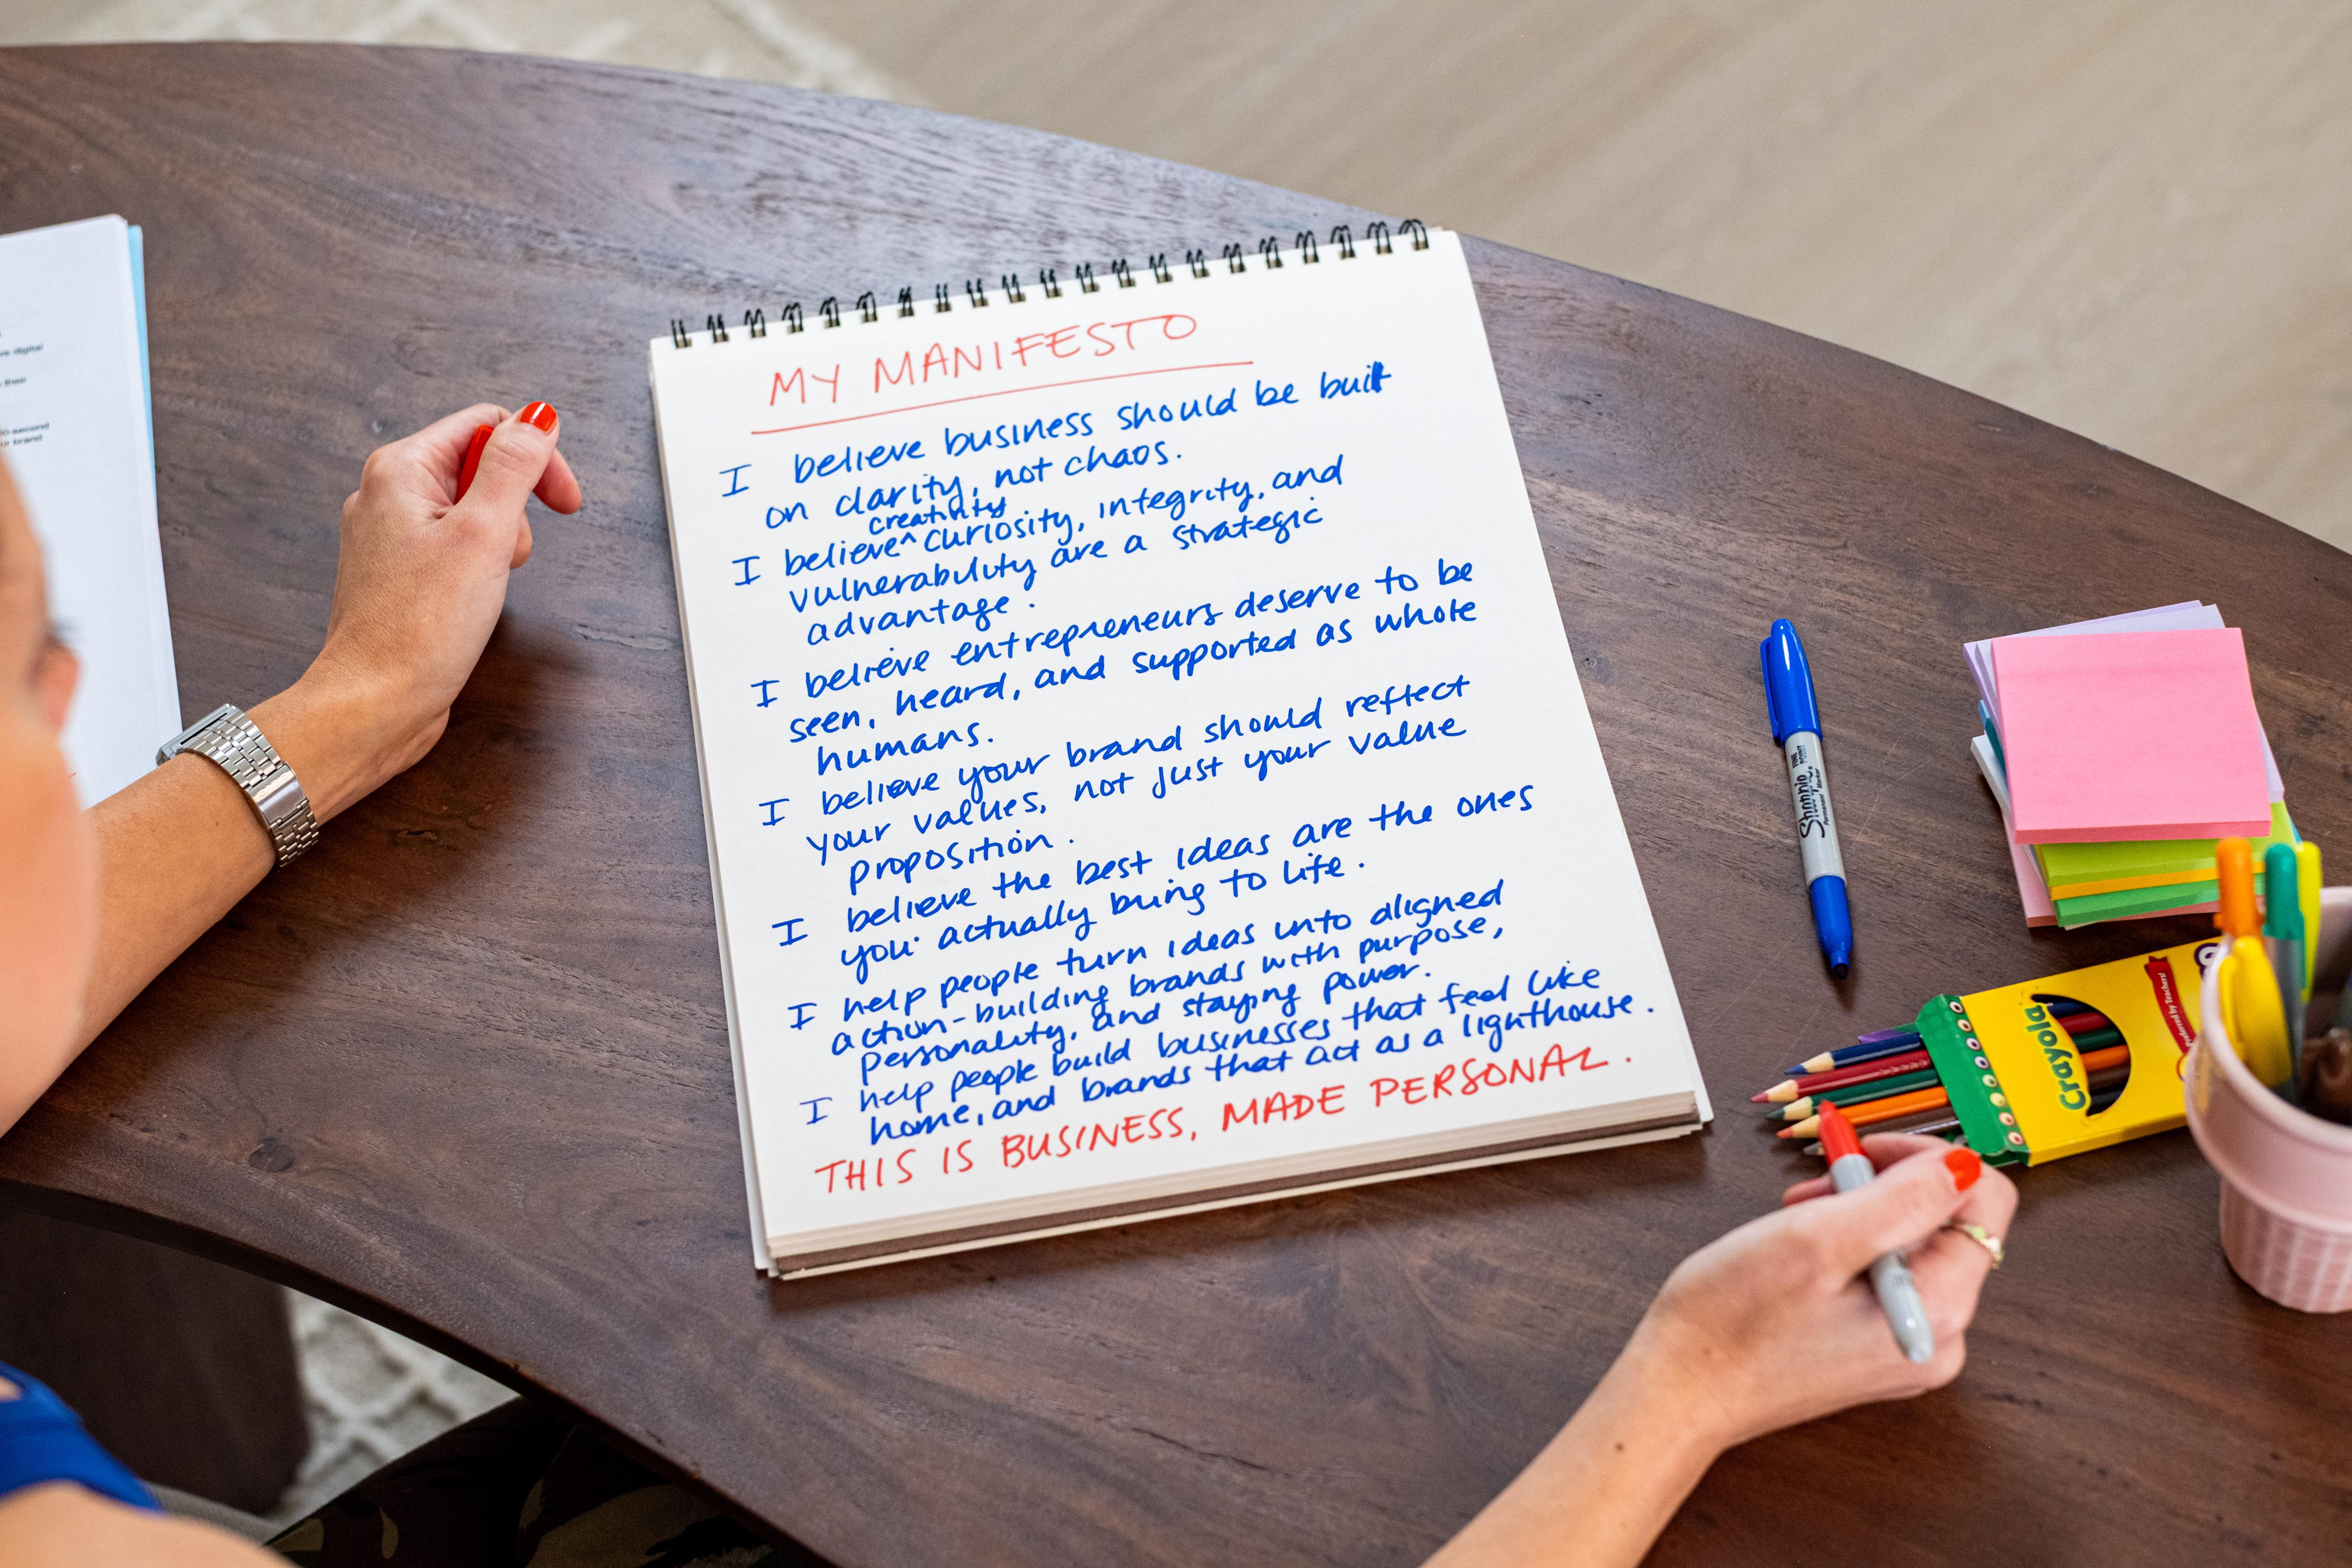 MY MANIFESTO
I believe business should be built
on clarity, not chaos.
creativity
I believe ^ curiosity, integrity, and
vulnerability are a strategic
advantage.
I believe entrepreneurs deserve to be
seen, heard, and supported as whole
humans.
I believe your brand should reflect
your values, not just your value
proposition.
I believe the best ideas are the ones
you actually bring to life.
I help people turn ideas into aligned
action-building brands with purpose,
personality, and staying power.
I help people build businesses that feel like
home, and brands that act as a lighthouse.
THIS IS BUSINESS, MADE PERSONAL.
ve digital
their
0-second
ur brand
Sharpie
Permanent Marker
Crayola
Preferred by Teachers!